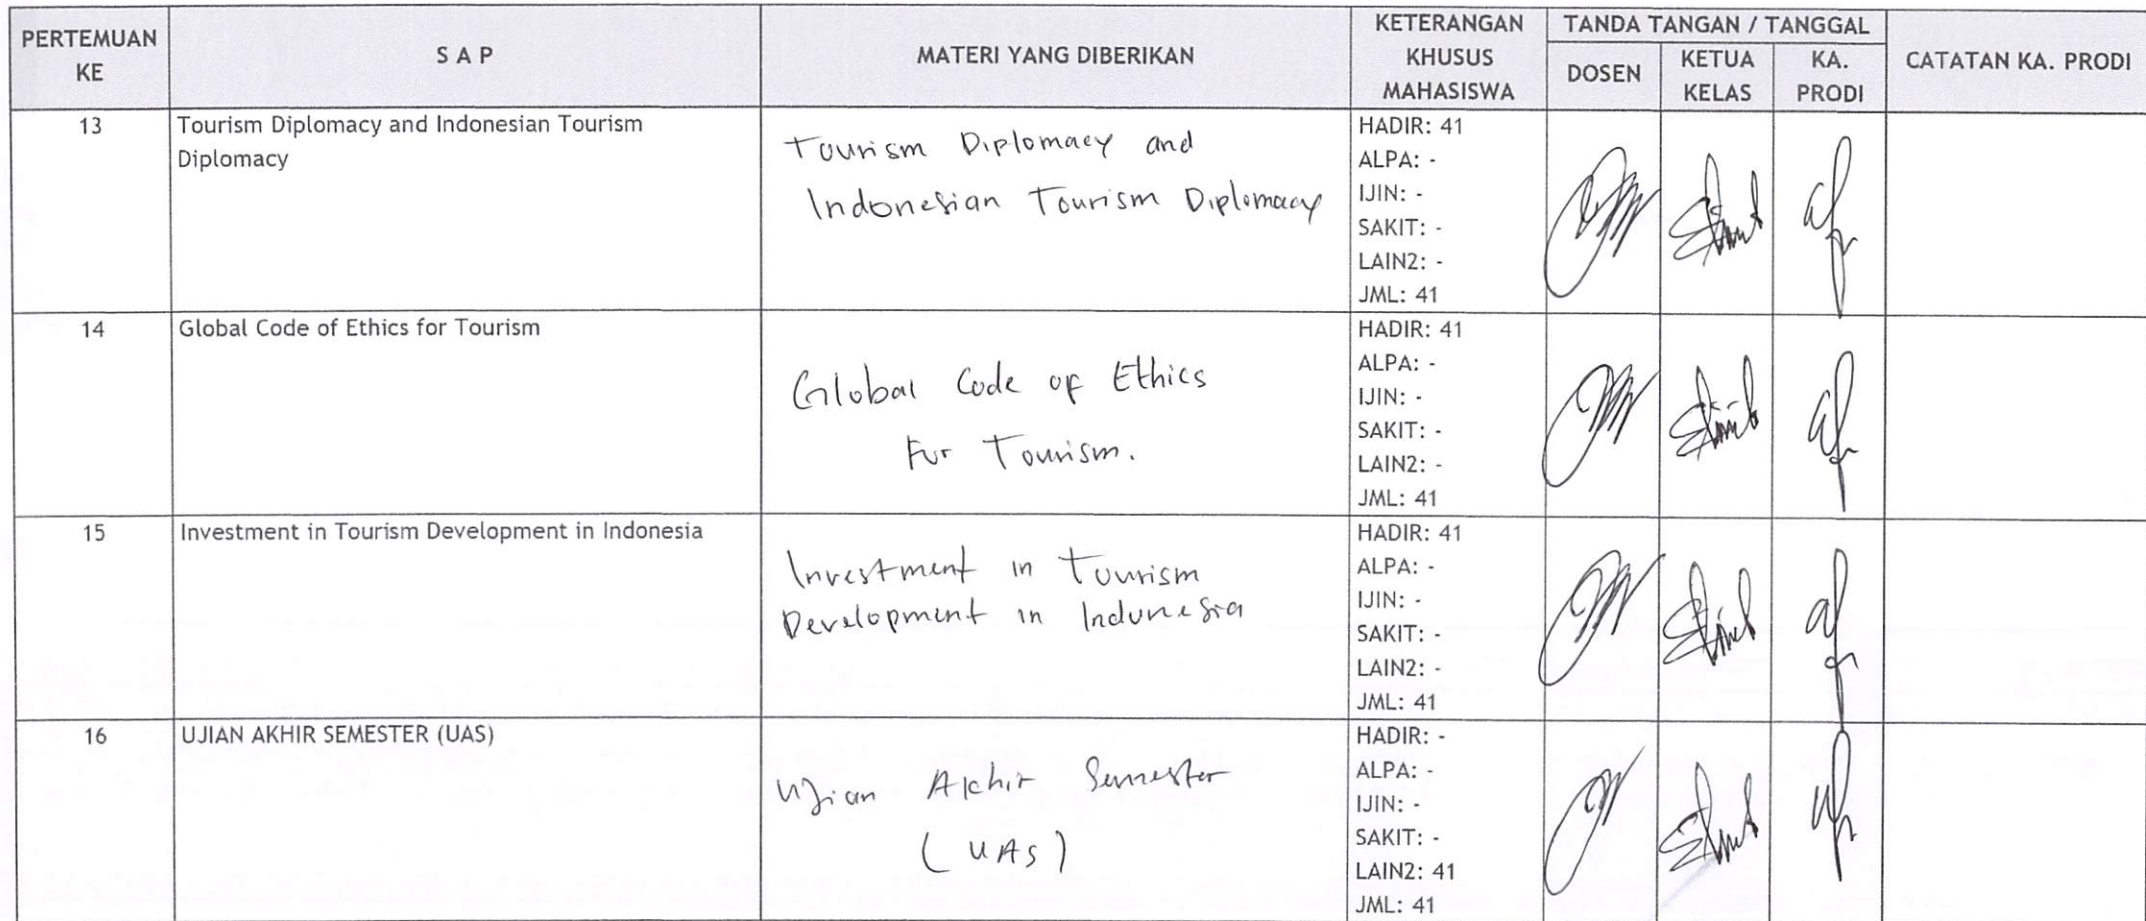 PERTEMUAN KE
S A P
MATERI YANG DIBERIKAN
KETERANGAN KHUSUS MAHASISWA
TANDA TANGAN / TANGGAL
DOSEN
KETUA KELAS
KA. PRODI
CATATAN KA. PRODI
13
Tourism Diplomacy and Indonesian Tourism
Diplomacy
Tourism Diplomacy and
Indonesian Tourism Diplomacy
HADIR: 41
ALPA: -
IJIN: -
SAKIT: -
LAIN2: -
JML: 41
14
Global Code of Ethics for Tourism
Global Code of Ethics
For Tourism.
HADIR: 41
ALPA: -
IJIN: -
SAKIT: -
LAIN2: -
JML: 41
15
Investment in Tourism Development in Indonesia
Investment in Tourism
Development in Indonesia
HADIR: 41
ALPA: -
IJIN: -
SAKIT: -
LAIN2: -
JML: 41
16
UJIAN AKHIR SEMESTER (UAS)
Ujian Akhir Semester
(UAS)
HADIR: -
ALPA: -
IJIN: -
SAKIT: -
LAIN2: 41
JML: 41